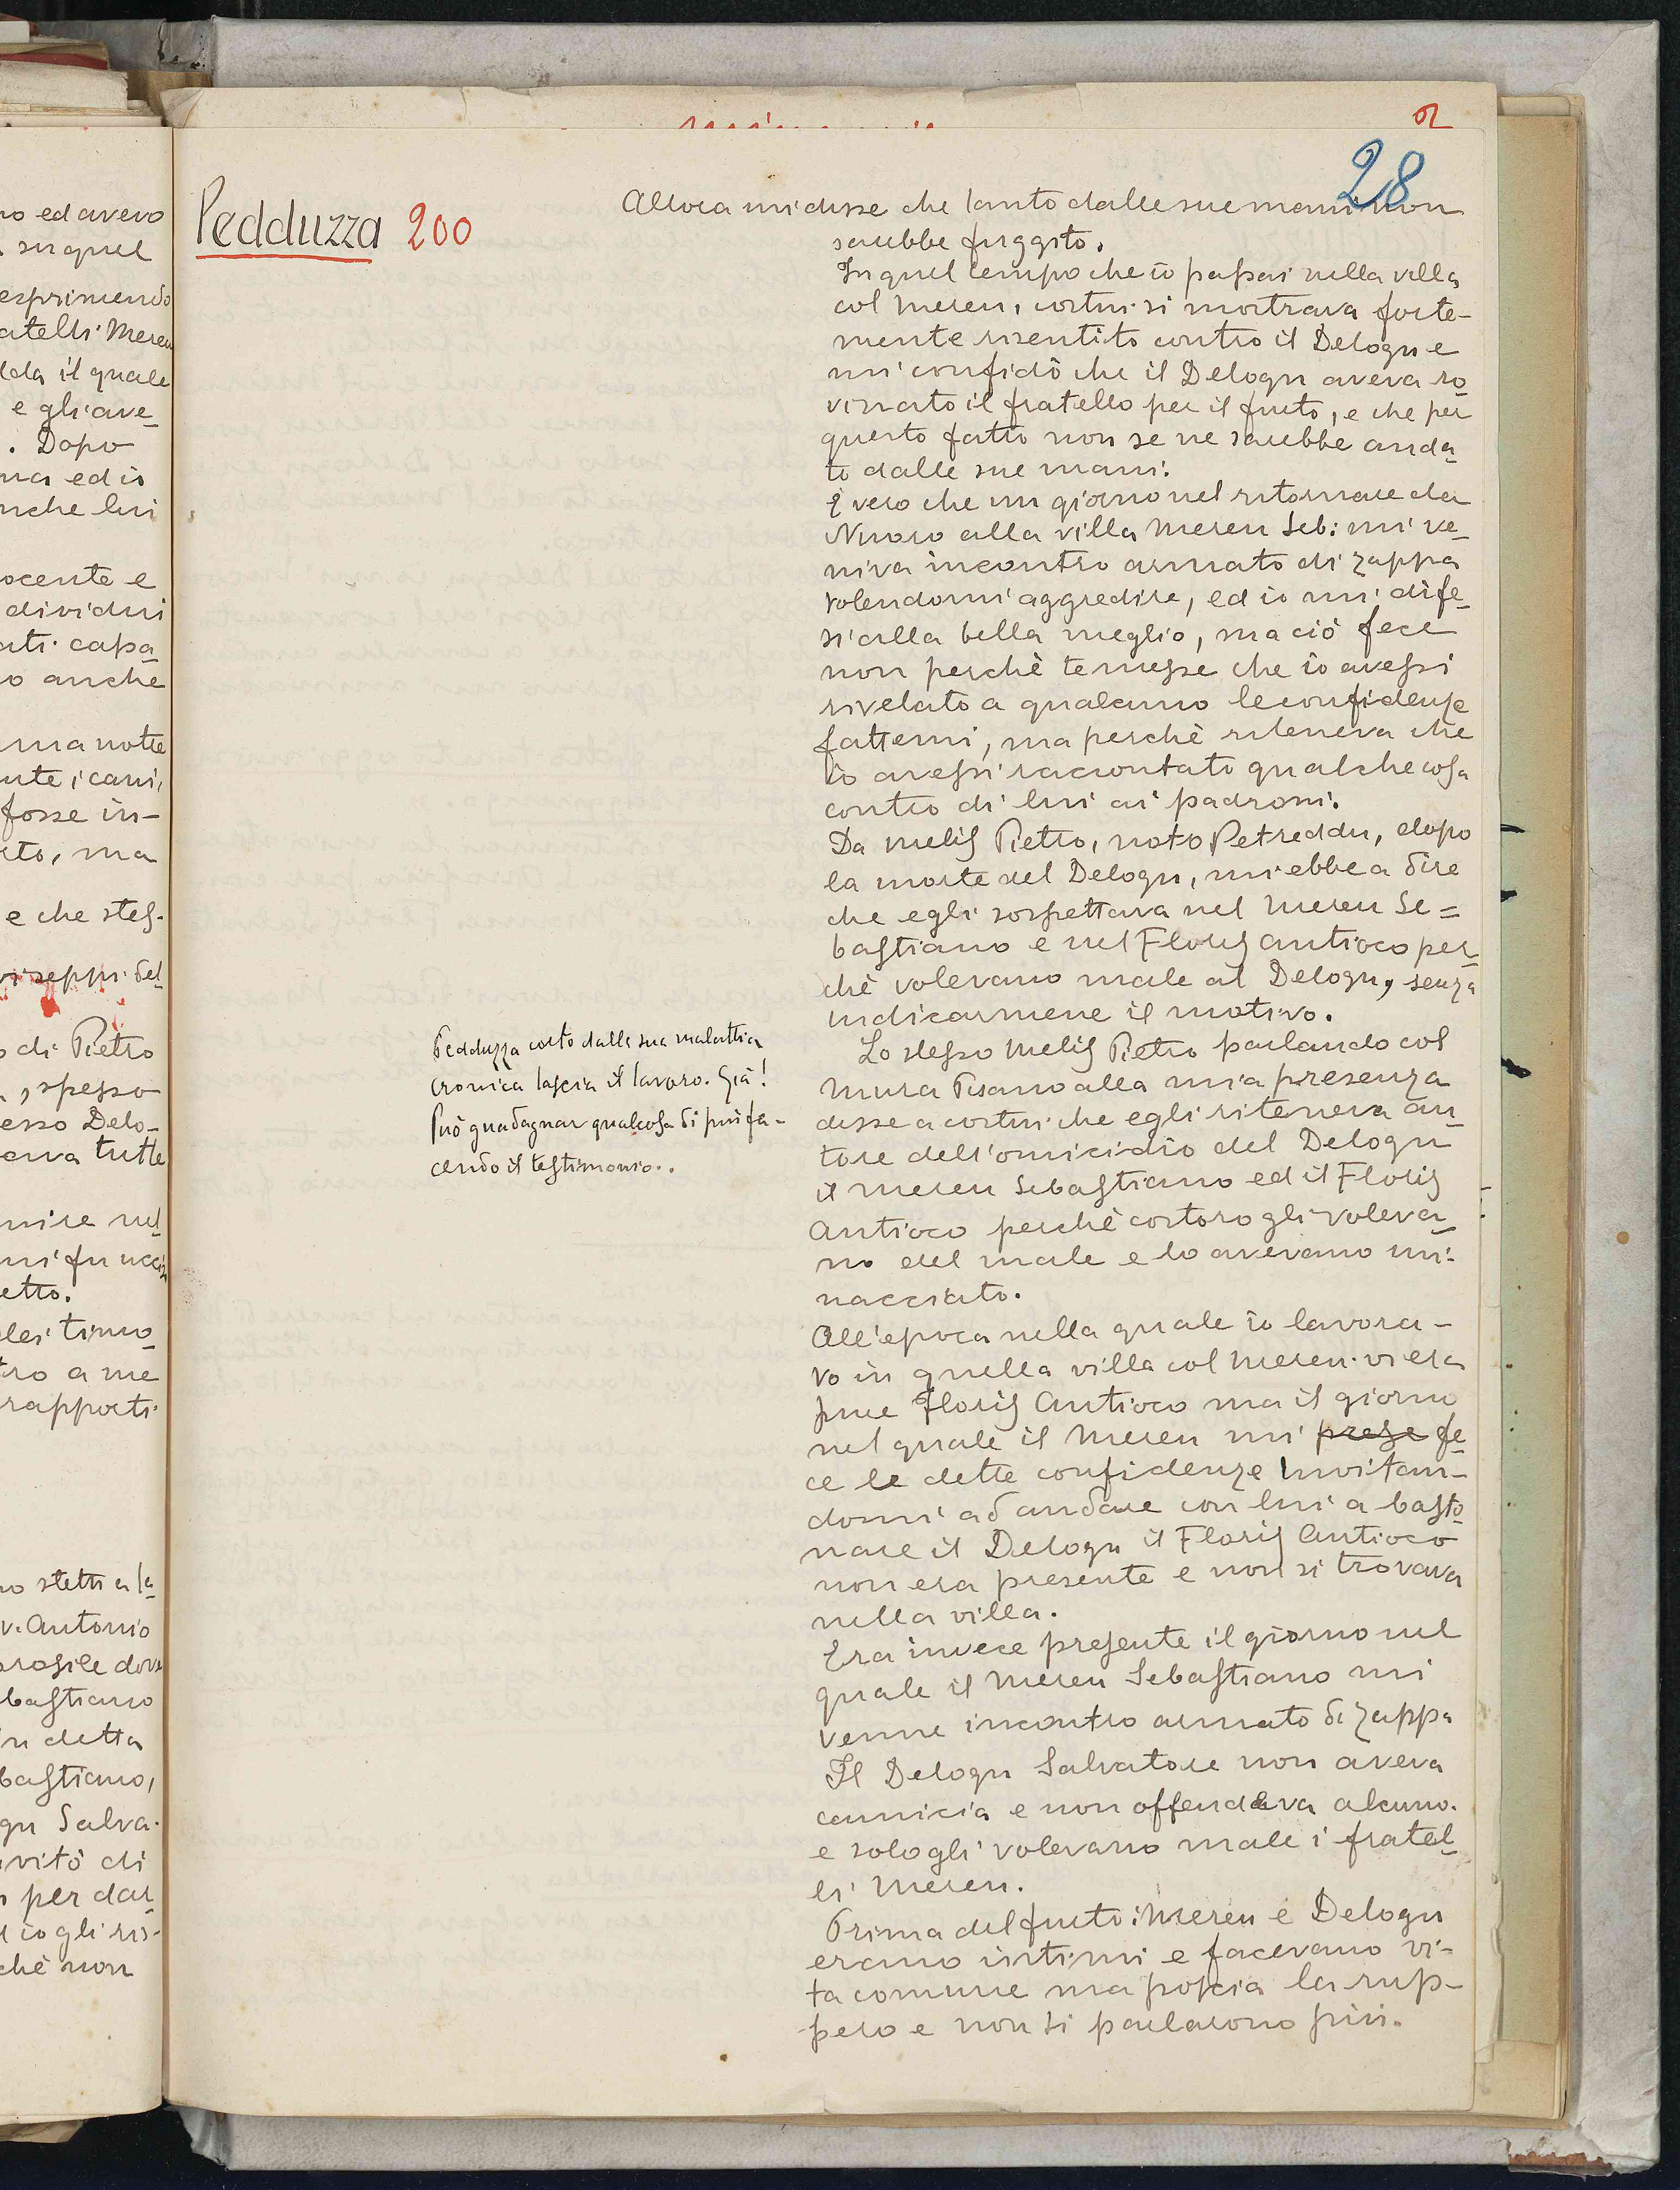 28
Pedduzza 200
Allora mi disse che tanto dalle sue mani non
sarebbe fuggito.
In quel tempo che io passai nella villa
col Mereu, costui si mostrava forte-
mente risentito contro il Delogu e
mi confidò che il Delogu aveva ro
vinato il fratello per il furto, e che per
questo fatto non se ne sarebbe anda-
to dalle sue mani.
È vero che un giorno nel ritornare da
Nuoro alla villa Mereu Seb: mi ve-
niva incontro armato di zappa
volendomi aggredire, ed io mi dife-
si alla bella meglio, ma ciò fece
non perchè temesse che io avessi
rivelato a qualcuno le confidenze
fattemi, ma perchè riteneva che
io avessi raccontato qualche cosa
contro di lui ai padroni.
Da Melis Pietro, noto Petreddu, dopo
la morte del Delogu, mi ebbe a dire
che egli sospettava nel Mereu Se=
bastiano e nel Floris Antioco per-
chè volevano male al Delogu, senza
indicarmene il motivo.
Lo stesso Melis Pietro parlando col
Mura Pisano alla mia presenza
disse a costui che egli riteneva au-
tore dell'omicidio del Delogu
il Mereu Sebastiano ed il Floris
Antioco perchè costoro gli voleva-
no del male e lo avevano mi-
nacciato.
All'epoca nella quale io lavora-
vo in quella villa col Mereu vi era
pure Floris Antioco ma il giorno
nel quale il Mereu mi prese fe-
ce le dette confidenze invitan-
domi ad andare con lui a basto-
nare il Delogu il Floris Antioco
non era presente e non si trovava
nella villa.
Era invece presente il giorno nel
quale il Mereu Sebastiano mi
venne incontro armato di zappa
Il Delogu Salvatore non aveva
camicia e non offendeva alcuno.
e solo gli volevano male i fratel-
li Mereu.
Prima del furto i Mereu e Delogu
erano intimi e facevano vi-
ta comune ma poscia la rup-
pero e non si parlarono più.
Pedduzza corto dalla sua malattia
cronica lascia il lavoro. Già!
Può guadagnar qualcosa di più fa-
cendo il testimonio..
no ed avevo
su quel
esprimendo
atelli Mereu
il quale
e gli ave-
. Dopo
ed io
nche lui
ocente e
dividui
ati capa-
o anche
ma notte
nte i cani,
fosse in-
to, ma
e che stes-
seppi del-
o di Pietro
, spesso
esso Delo-
tutte
nire nel-
mi fu
etto.
timo-
tro a me
rapporti
no stetti a la-
v. Antonio
dove
bastiano
detta
bastiano,
gu Salva-
vitò di
per dar-
io gli ris-
chè non